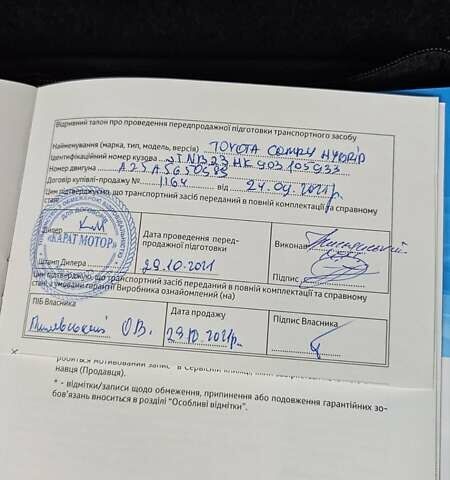 Відривний талон про проведення передпродажної підготовки транспортного засобу
Найменування (марка, тип, модель, версія) TOYOTA CAMRY HYBRID
Ідентифікаційний номер кузова JTNB23HK903105933
Номер двигуна A25A5650598
Договір купівлі-продажу № 1164 від 24.09.2021р.
Цим підтверджуємо, що транспортний засіб переданий в повній комплектації та справному
стані
Дилер КМ
"КАРАТ МОТОР"
ДЛЯ ДОГОВОРІВ
Штамп Дилера
Дата проведення перед-
продажної підготовки
29.10.2021
Виконав
Підпис
Цим підтверджую, що транспортний засіб переданий в повній комплектації та справному
стані, з умовами гарантії Виробника ознайомлений (на)
ПІБ Власника
О.В.
Дата продажу
29.10.2021р.
Підпис Власника
навця (Продавця).
* - відмітки/записи щодо обмеження, припинення або подовження гарантійних зо-
бов'язань вноситься в розділі "Особливі відмітки".